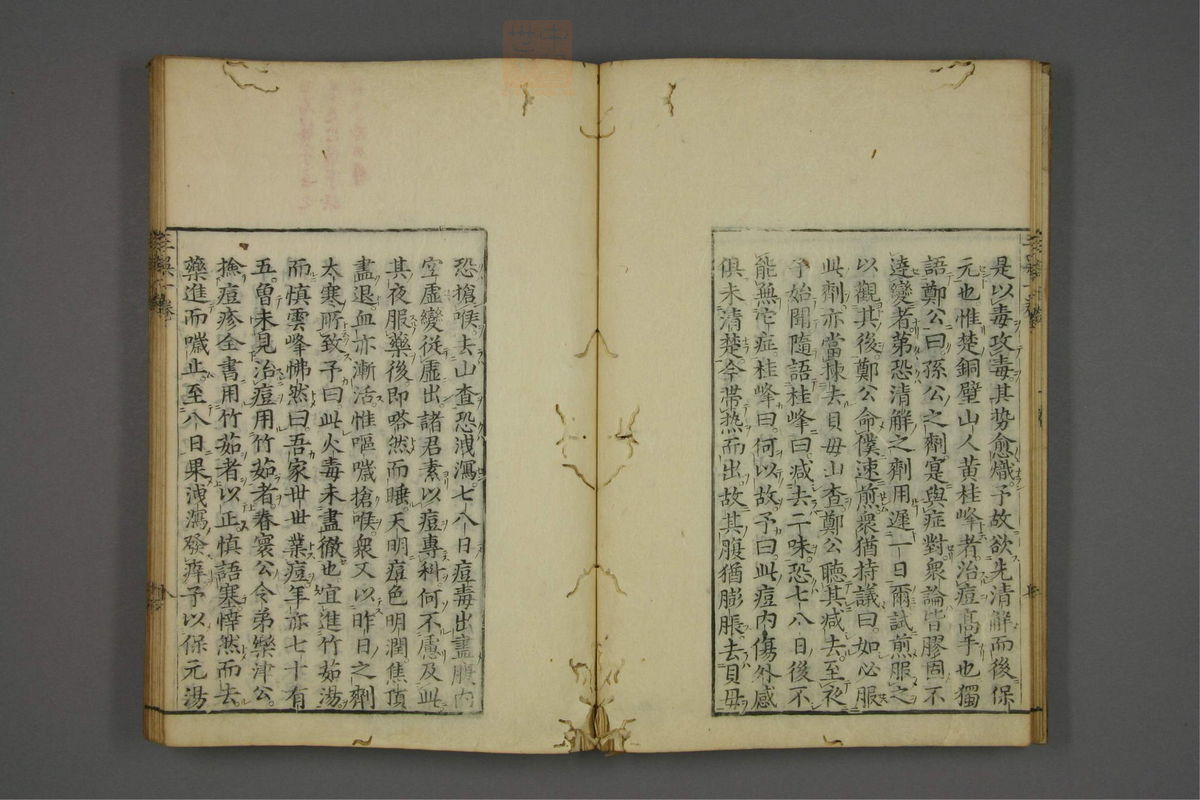 是以毒攻毒其势愈熾予故欲先清解而後保
元也惟楚銅壁山人黃桂峰者治痘高手也獨
語鄭公曰孫公之劑寔與症對衆論皆膠固不
達變者第恐清解之劑用遲一日爾試煎服之
以觀其後鄭公命僕速煎衆猶持議曰如必服
此劑亦當棟去貝毋山查鄭公聽其減去至衣
予始聞隨語桂峰曰減去二味恐七八日後不
能無它症桂峰曰何以故予曰此痘內傷外感
俱未清楚今帶热而出故其腹猶膨脹去貝毋
恐搶喉去山查恐洩瀉七八日痘毒出盡腹內
空虛變從虛出諸君素以痘專科何不慮及此
其夜服藥後即嗒然而睡天明痘色明潤焦頂
盡退血亦漸活惟嘔噦搶喉衆又以昨日之劑
太寒所致予曰此火毒未盡徹也宜進竹茹湯
而慎雲峰怫然曰吾家世世業痘年亦七十有
五曽未見治痘用竹茹者春寰公令弟樂津公
撿痘疹全書用竹茹者以正慎語塞悻然而去
藥進而噦止至八日果洩瀉發癢予以保元湯